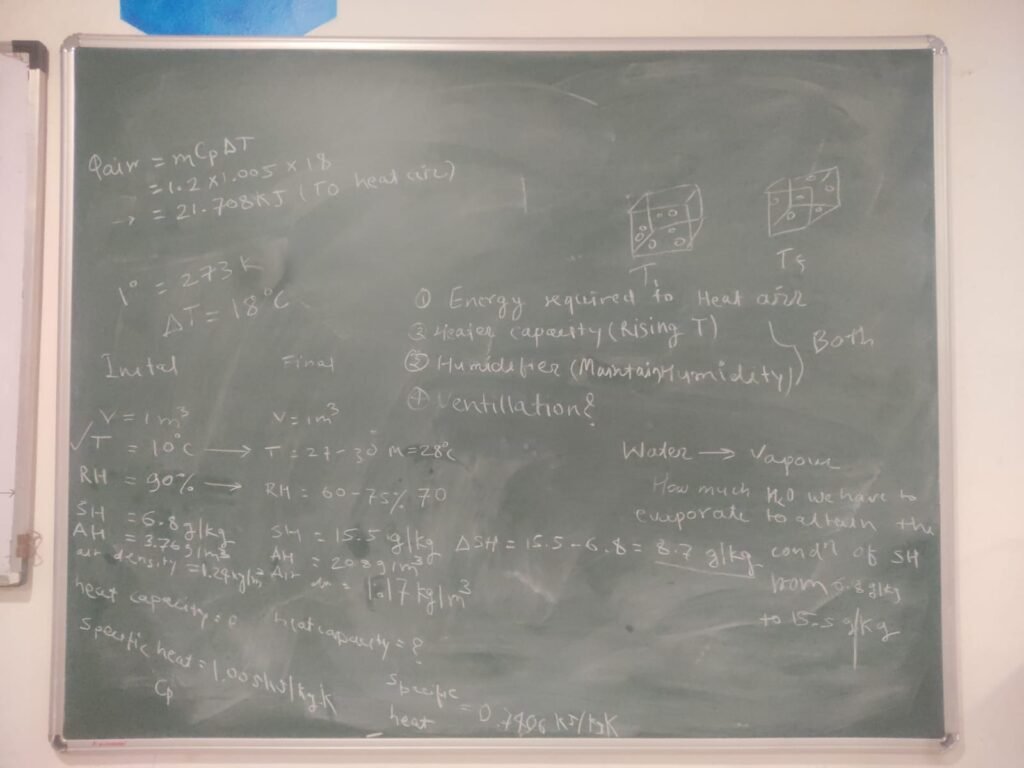 Qair = mCpΔT
= 1.2 x 1.005 x 18
→ = 21.708KJ (To heat air)
1° = 273 K
ΔT = 18°C
T₁
① Energy required to Heat air
② Heater capacity (Rising T)
③ Humidifier (Maintain Humidity)
Both
④ Ventillation?
Inital Final
V = 1 m³ V = 1m³
✓T = 10°C → T = 27-30 m=28°C
RH = 90% → RH = 60-75% 70
SH = 6.8 g/kg SH = 15.5 g/kg ΔSH = 15.5-6.8 = 8.7 g/kg
AH = g/m³ AH = g/m³
air density = kg/m³ Air = 1.17 kg/m³
heat capacity = heat capacity = ?
specific heat = 1.005 kJ/kg K
Cp
specific heat = 0. KJ/kgK
Water → Vapour
How much H₂O we have to
evaporate to attain the
cond'n of SH
from 6.8 g/kg
to 15.5 g/kg